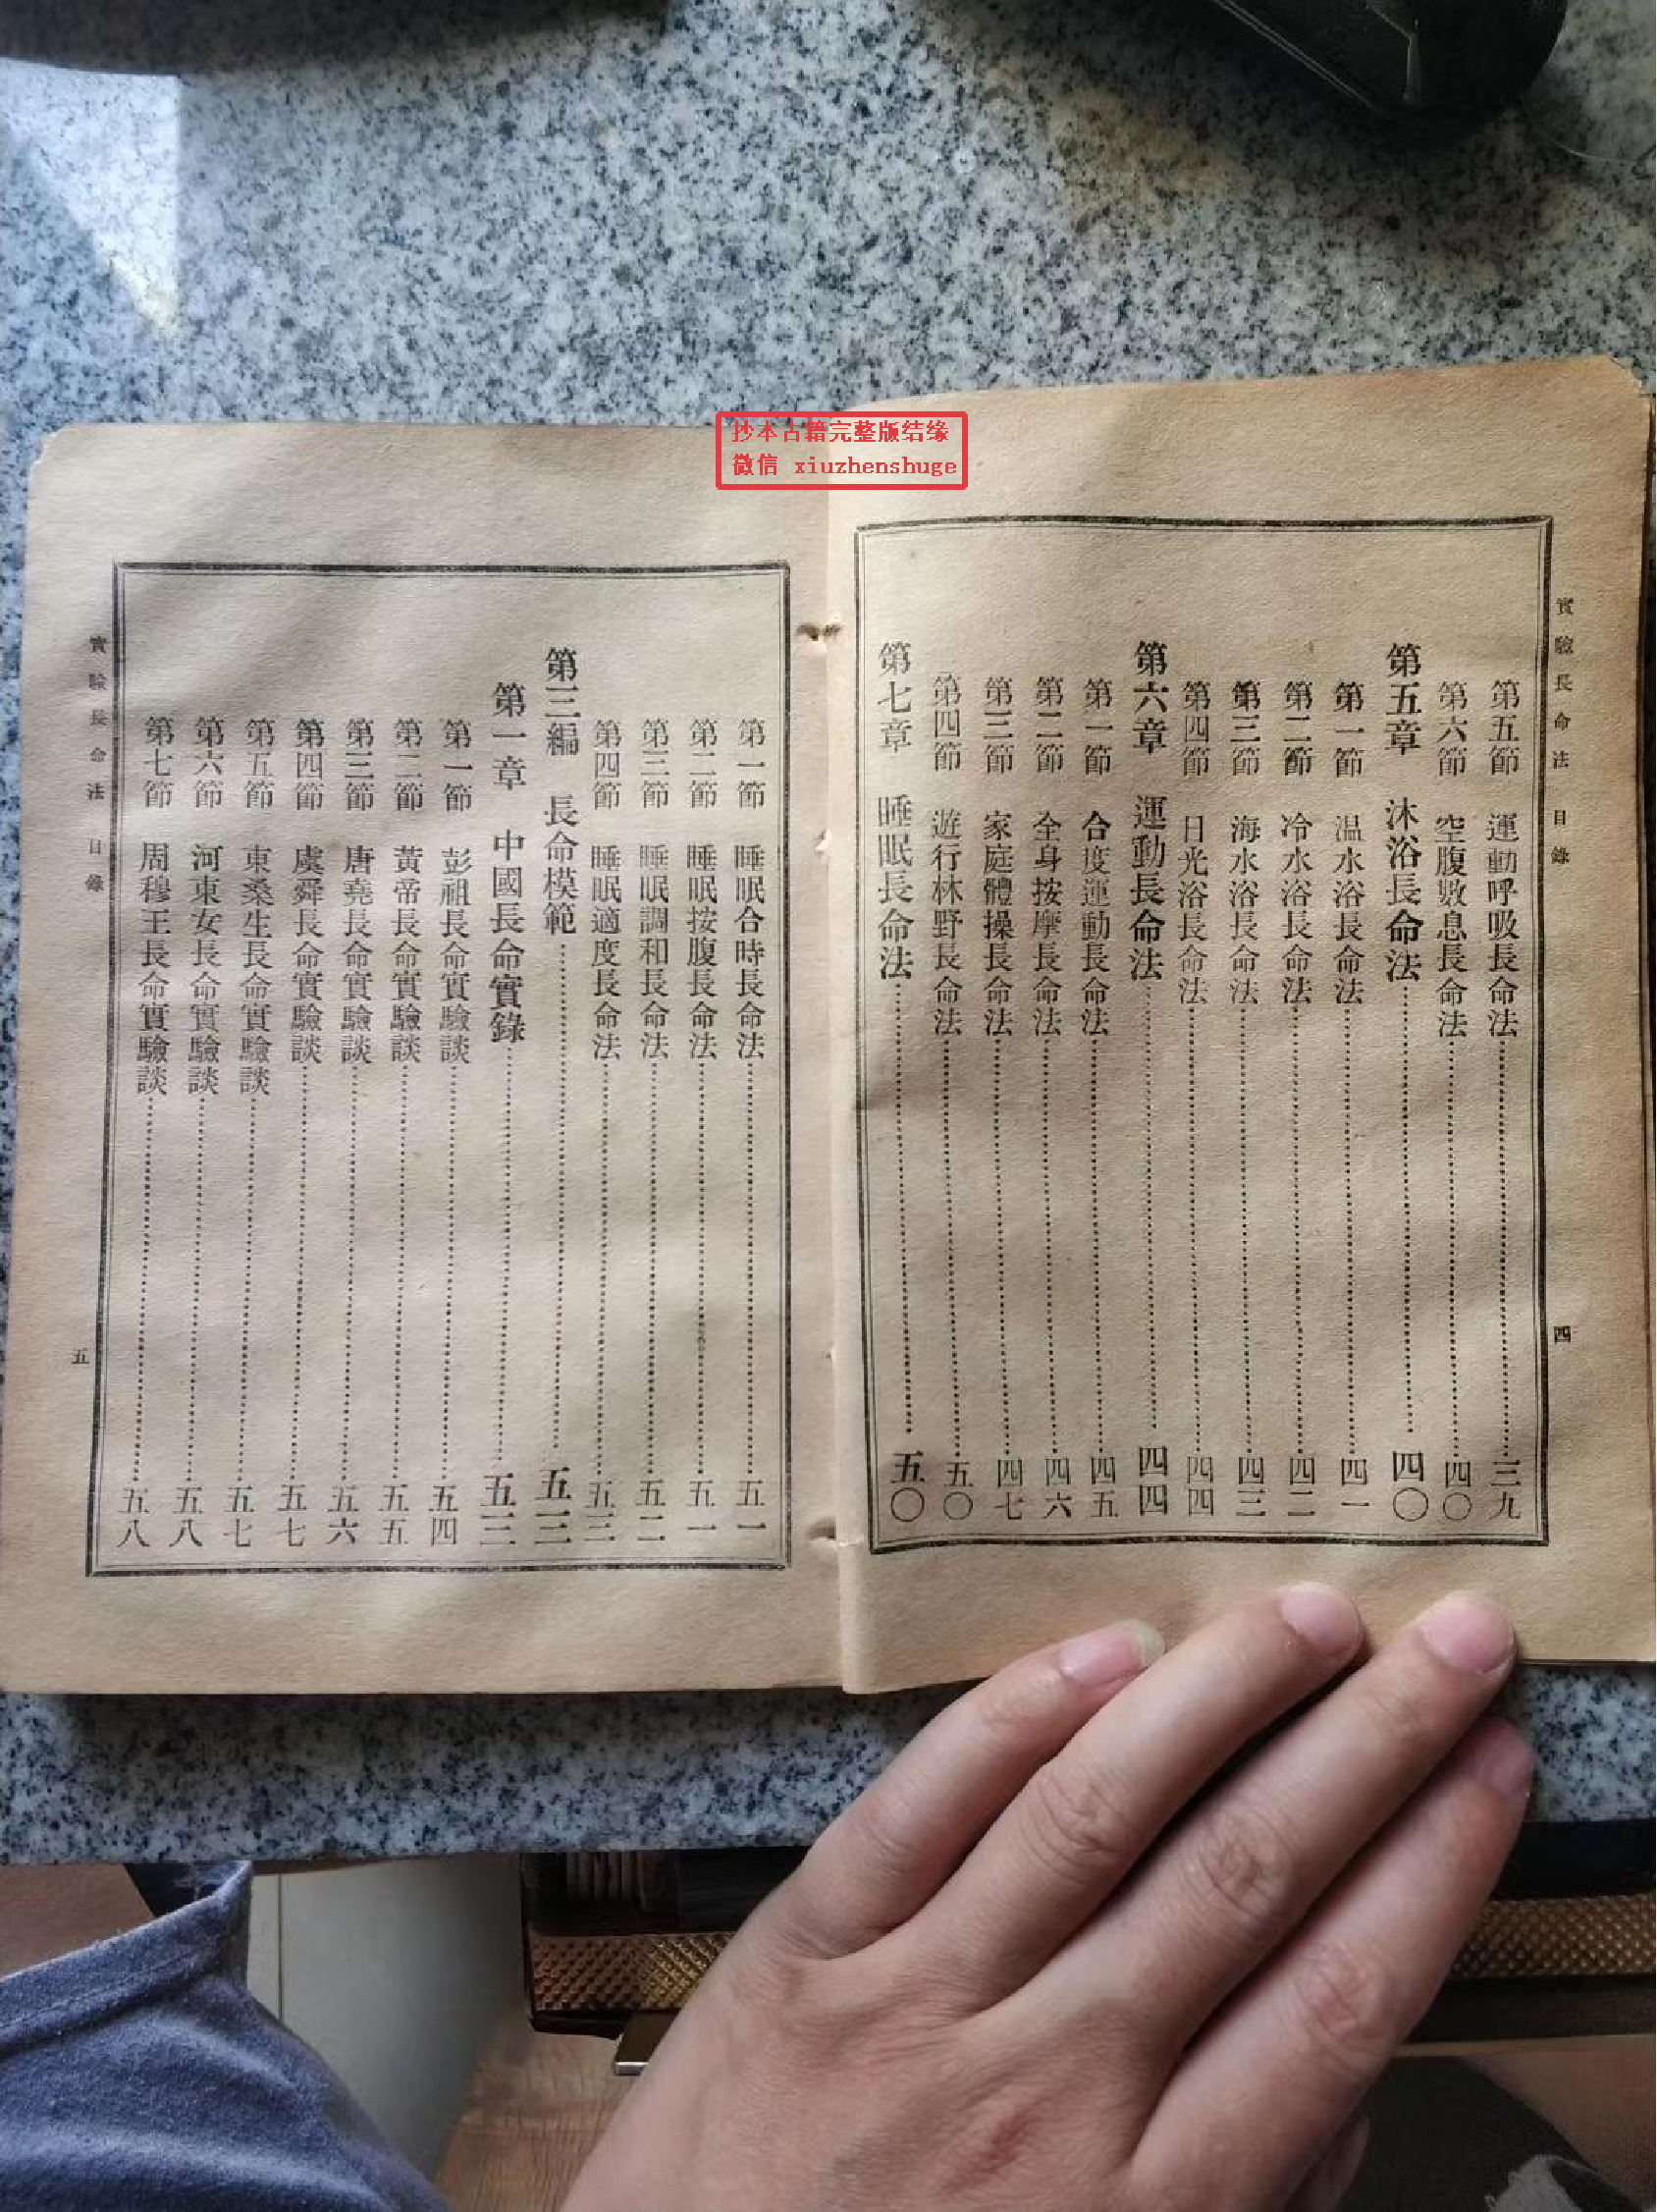 抄本古籍完整版结缘
微信 xiuzhenshuge
實驗長命法 目錄
四
第五節 運動呼吸長命法……三九
第六節 空腹數息長命法……四〇
第五章 沐浴長命法……四〇
第一節 温水浴長命法……四一
第二節 冷水浴長命法……四二
第三節 海水浴長命法……四三
第四節 日光浴長命法……四四
第六章 運動長命法……四四
第一節 合度運動長命法……四五
第二節 全身按摩長命法……四六
第三節 家庭體操長命法……四七
第四節 遊行林野長命法……五〇
第七章 睡眠長命法……五〇
第一節 睡眠合時長命法……五一
第二節 睡眠按腹長命法……五一
第三節 睡眠調和長命法……五二
第四節 睡眠適度長命法……五三
第三編 長命模範……五三
第一章 中國長命實錄……五三
第一節 彭祖長命實驗談……五四
第二節 黃帝長命實驗談……五五
第三節 唐堯長命實驗談……五六
第四節 虞舜長命實驗談……五七
第五節 東桑生長命實驗談……五七
第六節 河東女長命實驗談……五八
第七節 周穆王長命實驗談……五八
實驗長命法 目錄
五